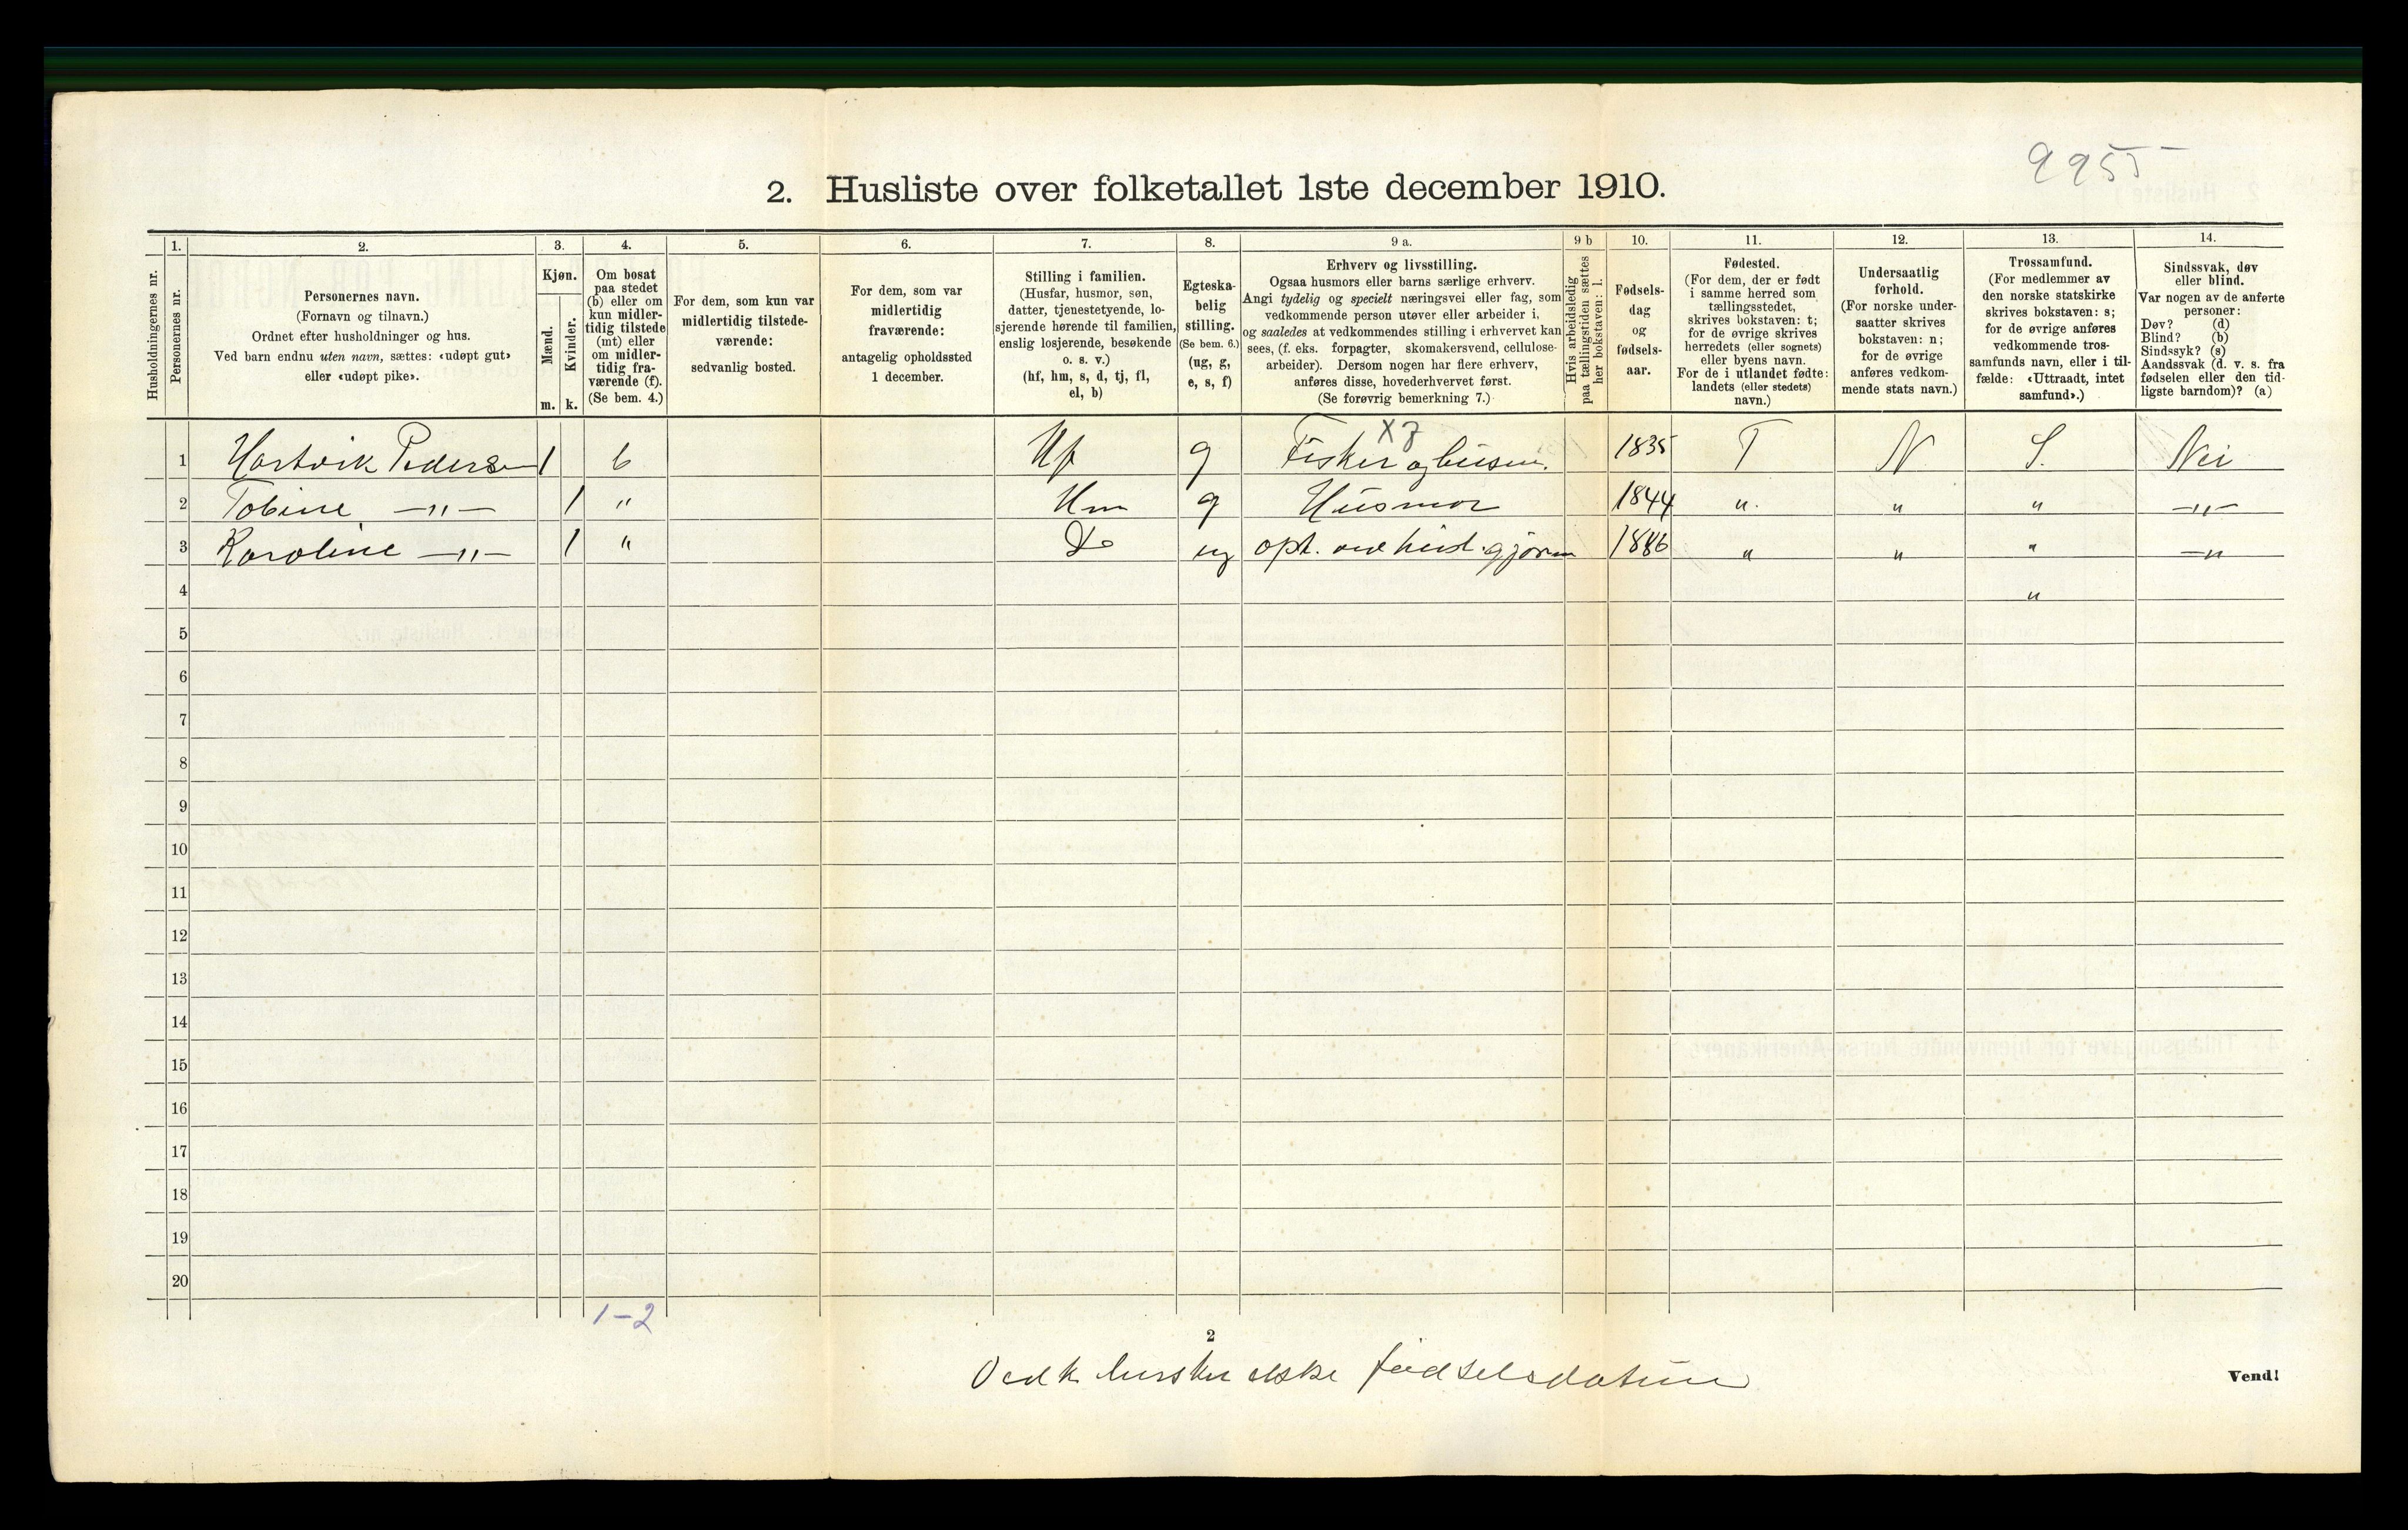 9955
2. Husliste over folketallet 1ste december 1910.
1. 2. 3. 4. 5. 6. 7. 8. 9 a. 9 b 10. 11. 12. 13. 14.
Husholdningernes nr.
Personernes nr.
Personernes navn.
(Fornavn og tilnavn.)
Ordnet efter husholdninger og hus.
Ved barn endnu uten navn, sættes: «udøpt gut»
eller «udøpt pike».
Kjøn.
Mænd.
Kvinder.
m. k.
Om bosat
paa stedet
(b) eller om
kun midler-
tidig tilstede
(mt) eller
om midler-
tidig fra-
værende (f).
(Se bem. 4.)
For dem, som kun var
midlertidig tilstede-
værende:
sedvanlig bosted.
For dem, som var
midlertidig
fraværende:
antagelig opholdssted
1 december.
Stilling i familien.
(Husfar, husmor, søn,
datter, tjenestetyende, lo-
sjerende hørende til familien,
enslig losjerende, besøkende
o. s. v.)
(hf, hm, s, d, tj, fl,
el, b)
Egteska-
belig
stilling.
(Se bem. 6.)
(ug, g,
e, s, f)
Erhverv og livsstilling.
Ogsaa husmors eller barns særlige erhverv.
Angi tydelig og specielt næringsvei eller fag, som
vedkommende person utøver eller arbeider i,
og saaledes at vedkommendes stilling i erhvervet kan
sees, (f. eks. forpagter, skomakersvend, cellulose-
arbeider). Dersom nogen har flere erhverv,
anføres disse, hovederhvervet først.
(Se forøvrig bemerkning 7.)
Hvis arbeidsledig
paa tællingstiden sættes
her bokstaven: l.
Fødsels-
dag
og
fødsels-
aar.
Fødested.
(For dem, der er født
i samme herred som
tællingsstedet,
skrives bokstaven: t;
for de øvrige skrives
herredets (eller sognets)
eller byens navn.
For de i utlandet fødte:
landets (eller stedets)
navn.)
Undersaatlig
forhold.
(For norske under-
saatter skrives
bokstaven: n;
for de øvrige
anføres vedkom-
mende stats navn.)
Trossamfund.
(For medlemmer av
den norske statskirke
skrives bokstaven: s;
for de øvrige anføres
vedkommende tros-
samfunds navn, eller i til-
fælde: «Uttraadt, intet
samfund».)
Sindssvak, døv
eller blind.
Var nogen av de anførte
personer:
Døv? (d)
Blind? (b)
Sindssyk? (s)
Aandssvak (d. v. s. fra
fødselen eller den tid-
ligste barndom)? (a)
X 7
1 Hartvik Pedersen 1 b Hf g Fisker og 1835 T N S. Nei
2 Tobine —"— 1 " Hm g Husmor 1844 " " " —"—
3 Karoline —"— 1 " D ug opt. ved husl. gjørem 1886 " " " —"
4 "
5
6
7
8
9
10
11
12
13
14
15
16
17
18
19
20
1-2
2
Vedk husker ikke fødselsdatum
Vend!